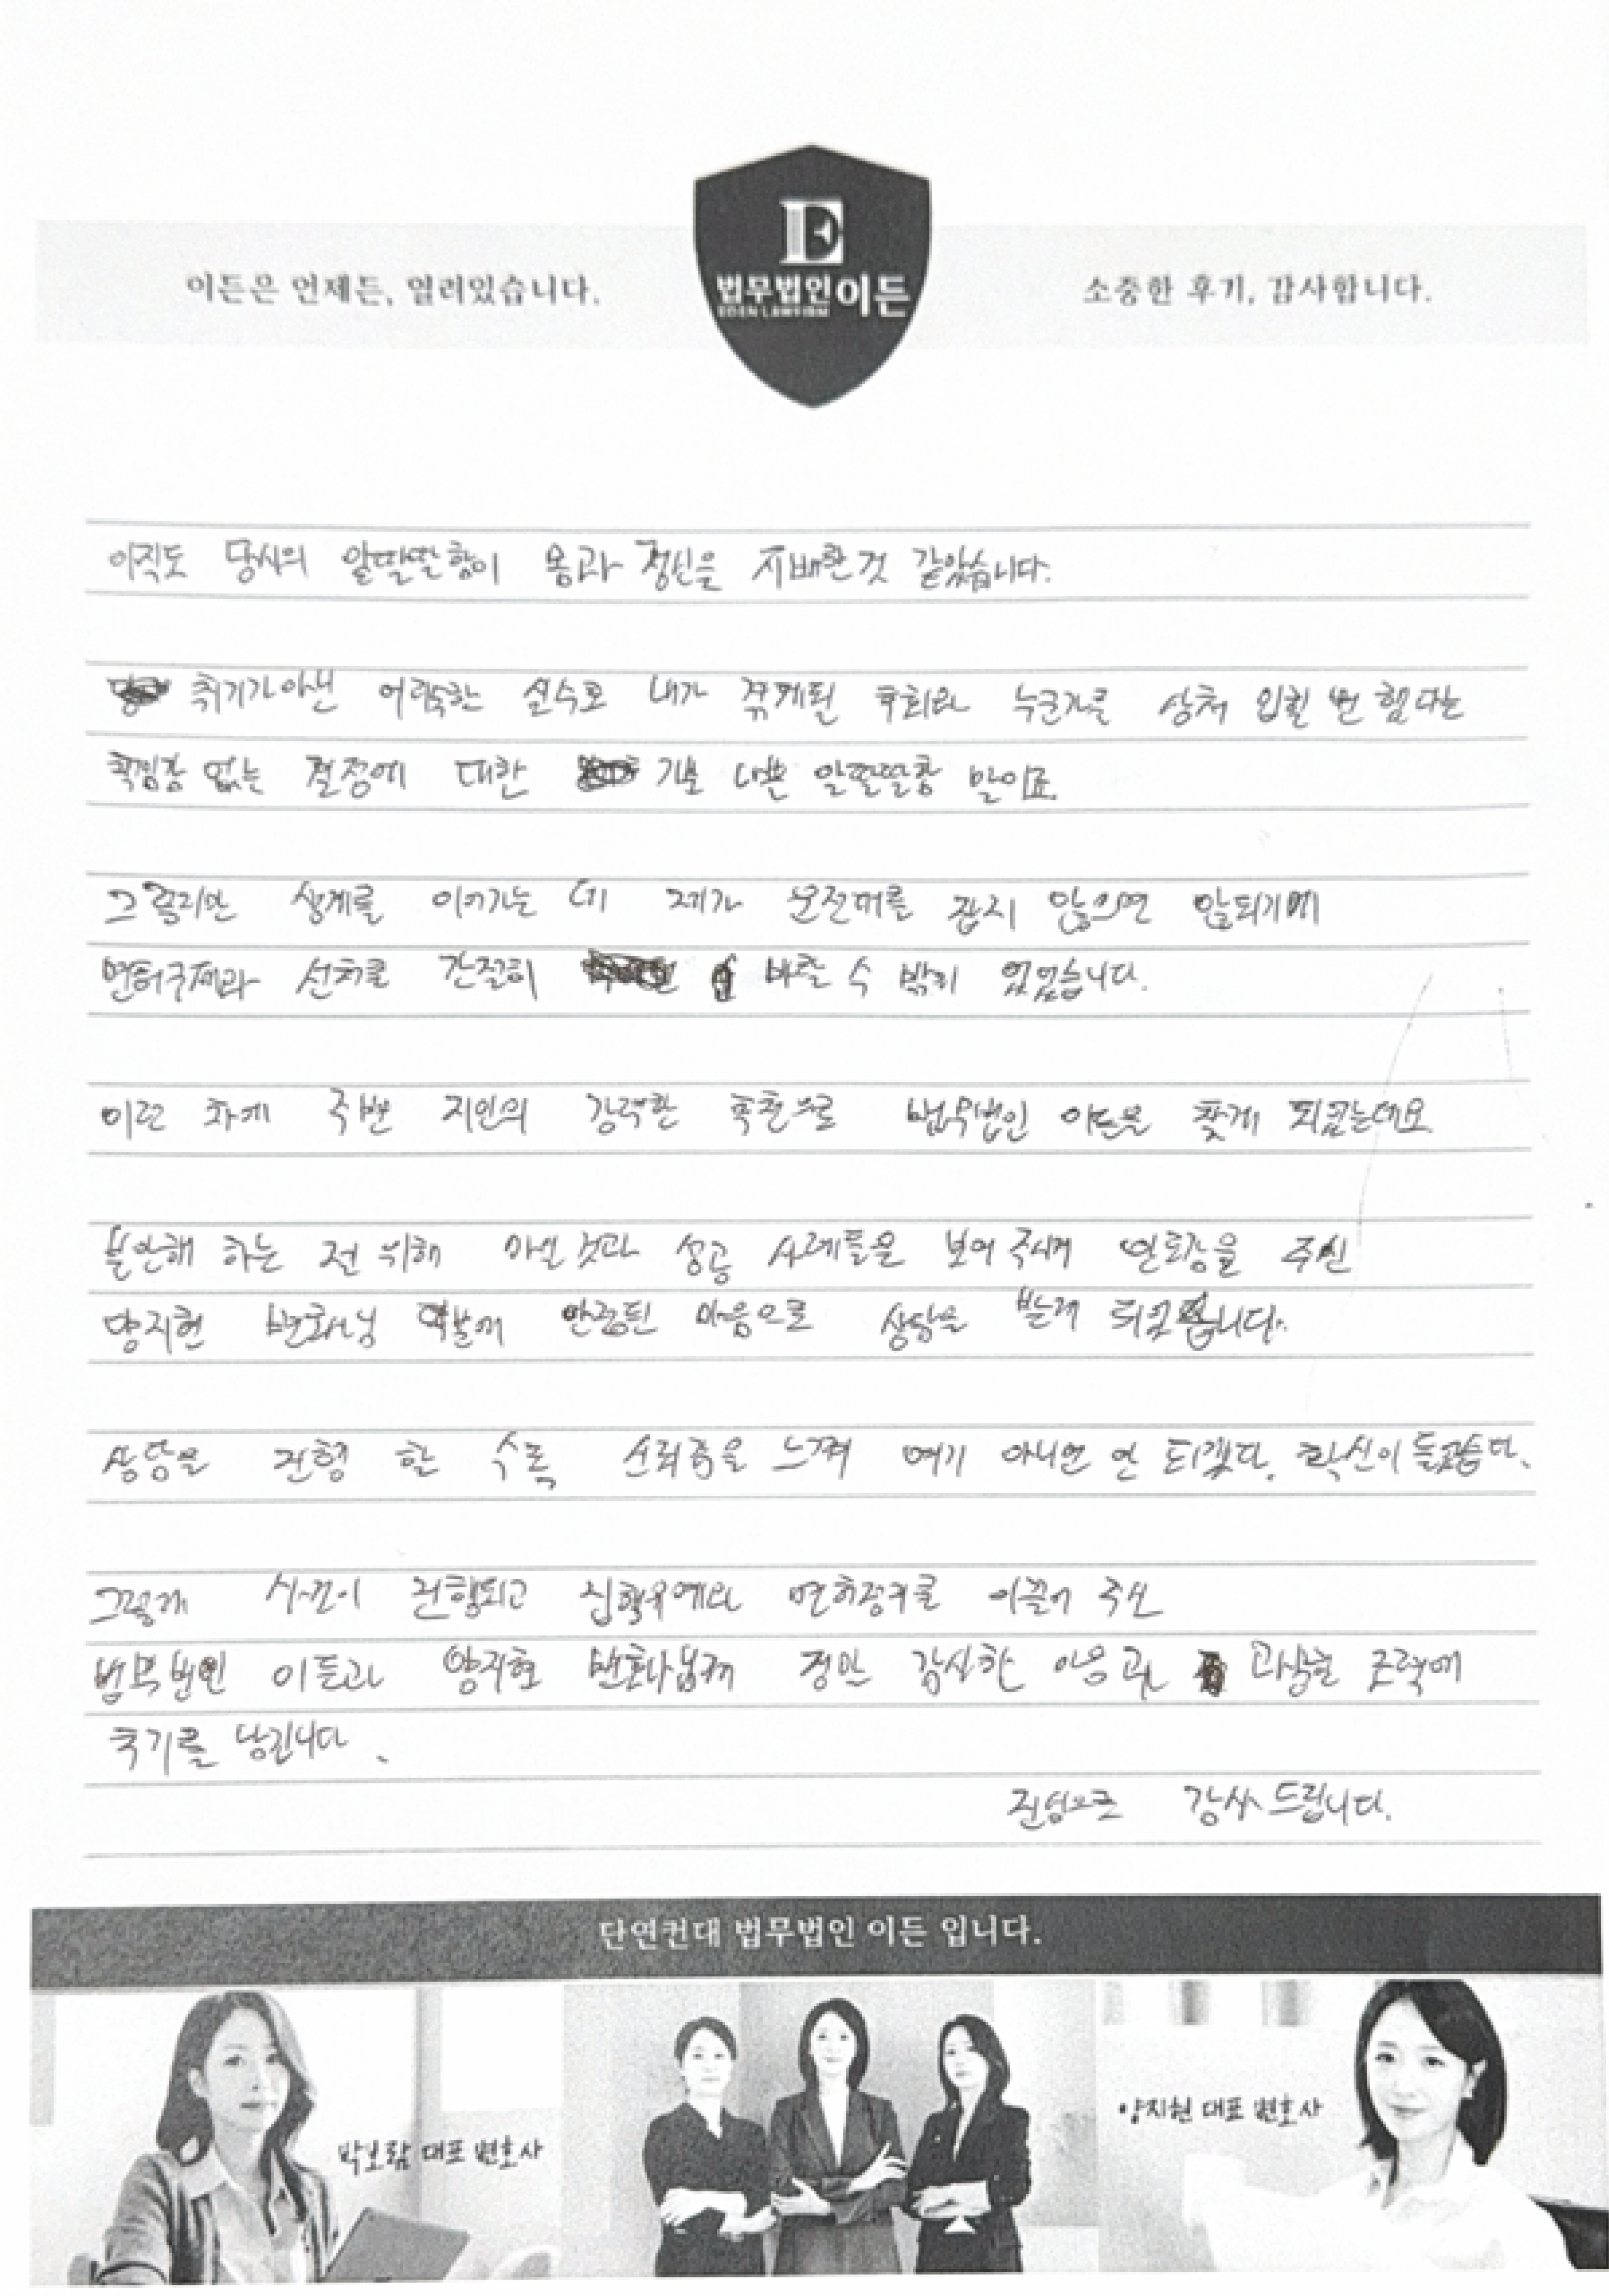 이든은 언제든, 열려있습니다.
E
법무법인이든
EDEN LAWFIRM
소중한 후기, 감사합니다.
아직도 당시의 알딸딸함이 몸과 정신을 지배한것 같았습니다.
취기가아닌 어리숙한 실수로 내가 겪게될 후회와 누군가를 상처 입힐 뻔 했다는
책임감 없는 결정에 대한 기분 나쁜 알딸딸함 말이죠
그렇지만 생계를 이어가는 데 제가 운전대를 잡지 않으면 않되기에
면허구제과 선처를 간절히 바랄 수 밖에 없었습니다.
이런 차에 주변 지인의 강력한 추천으로 법무법인 이든을 찾게 되었는데요
불안해 하는 절 위해 성공 사례들을 보여 주시며 안도감을 주신
양지현 변호사님 덕분에 안정된 마음으로 상담을 받게 되었습니다.
상담을 진행 할 수록 신뢰감을 느껴 여기 아니면 안 되겠다, 확신이 들었습니다.
그렇게 시간이 진행되고 집행유예와 면허정지를 이끌어 주신
법무법인 이든과 양지현 변호사님께 정말 감사한 마음과 노력에
후기를 남깁니다.
진심으로 감사드립니다.
단연컨대 법무법인 이든 입니다.
박보람 대표 변호사
양지현 대표 변호사